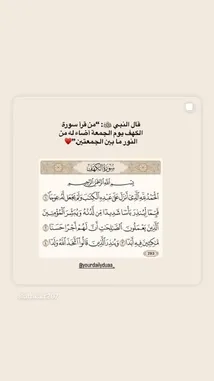 قال النبي ﷺ: "من قرأ سورة
الكهف يوم الجمعة أضاء له من
النور ما بين الجمعتين"❤️
سُورَةُ الكَهْفِ
بِسْمِ اللَّهِ الرَّحْمَٰنِ الرَّحِيمِ
الْحَمْدُ لِلَّهِ الَّذِي أَنزَلَ عَلَىٰ عَبْدِهِ الْكِتَابَ وَلَمْ يَجْعَل لَّهُ عِوَجًا ١
قَيِّمًا لِّيُنذِرَ بَأْسًا شَدِيدًا مِّن لَّدُنْهُ وَيُبَشِّرَ الْمُؤْمِنِينَ
الَّذِينَ يَعْمَلُونَ الصَّالِحَاتِ أَنَّ لَهُمْ أَجْرًا حَسَنًا ٢
مَّاكِثِينَ فِيهِ أَبَدًا ٣ وَيُنذِرَ الَّذِينَ قَالُوا اتَّخَذَ اللَّهُ وَلَدًا ٤
٢٩٣
@yourdailyduaa_